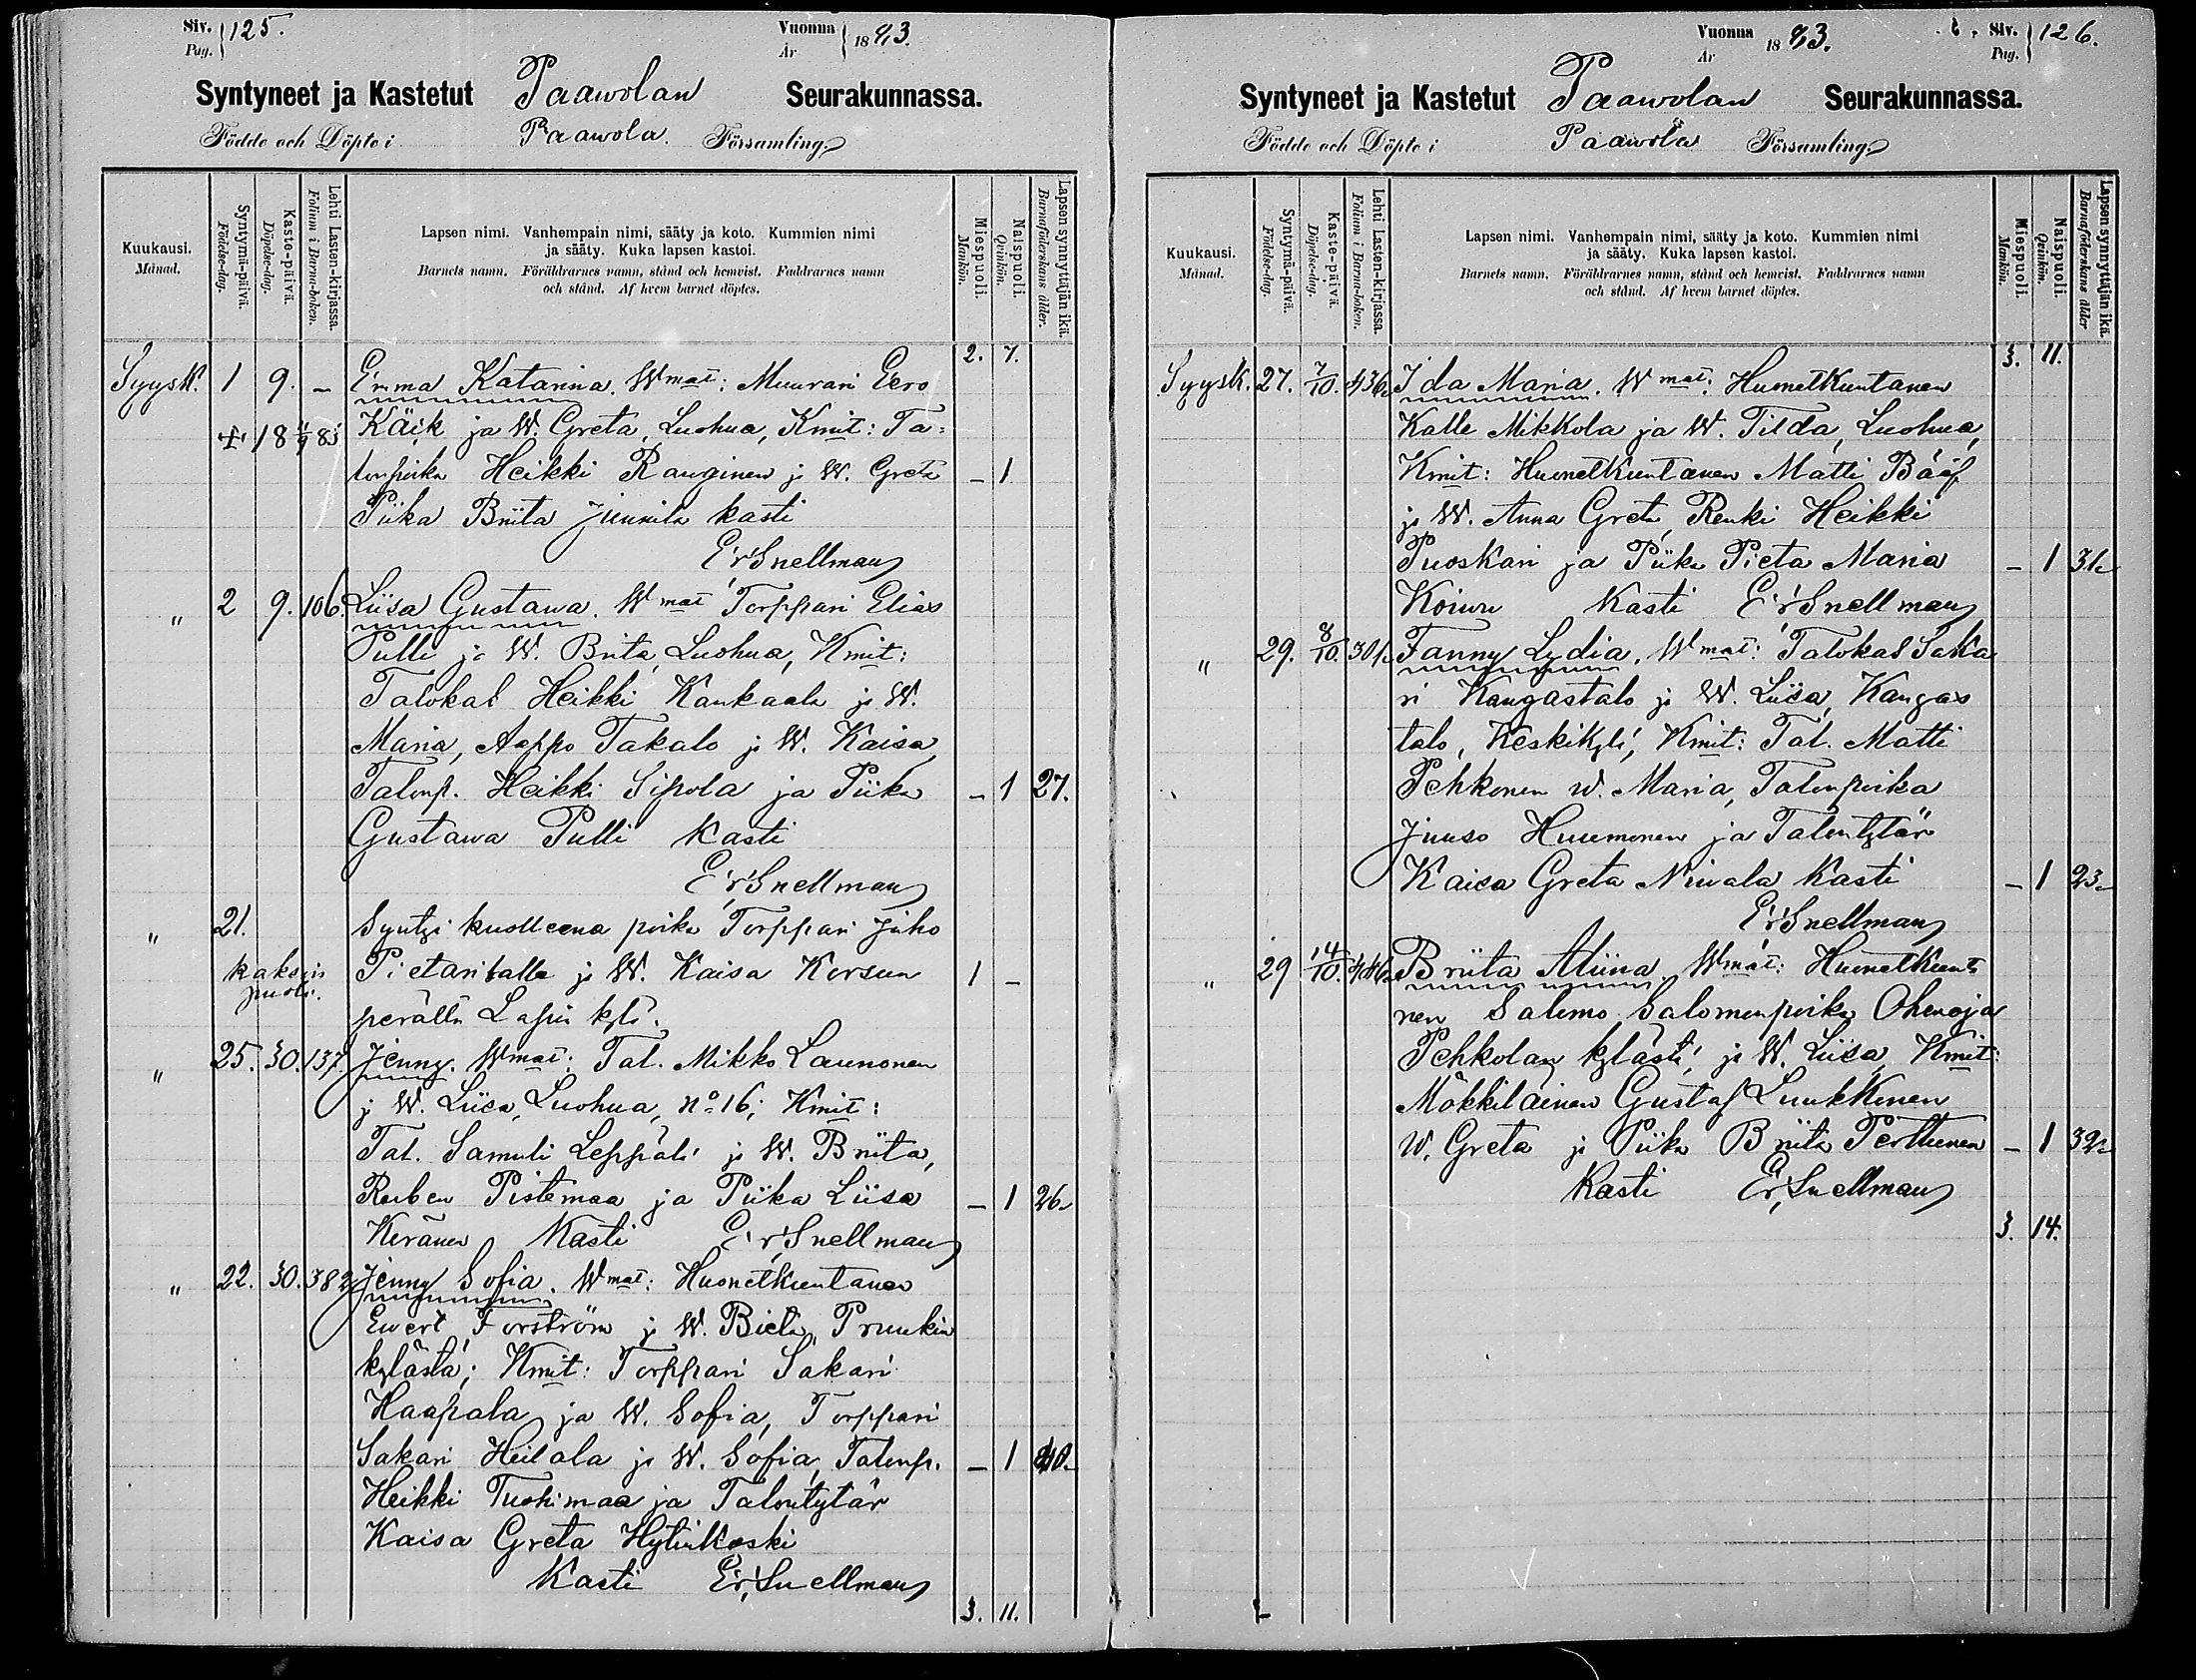 Siv. Pag. 125.
Vuonna År 1893.
Syntyneet ja Kastetut Paawolan Seurakunnassa.
Födde och Döpte i Paawola. Församling.
Kuukausi. Månad.
Syntymä-päivä. Födelse-dag.
Kaste-päivä. Döpelse-dag.
Lehti Lasten-kirjassa. Folium i Barna-boken.
Lapsen nimi. Vanhempain nimi, sääty ja koto. Kummien nimi
ja sääty. Kuka lapsen kastoi.
Barnets namn. Föräldrarnes namn, stånd och hemvist. Faddrarnes namn
och stånd. Af hvem barnet döptes.
Miespuoli. Mankön.
Naispuoli. Qvinkön.
Lapsen synnyttäjän ikä. Barnaföderskans ålder.
2. 7.
Syysk. 1 9. – Emma Katariina. Wmat: Muurari Eero
Käck ja W. Greta, Luohua, Kmit: Ta-
lonpoika Heikki Rauginen j. W. Greta – 1
Piika Briita Junnila kasti
Er. Snellman
" 2 9. 106. Liisa Gustawa. Wmat Torppari Elias
Pulli ja W. Brita, Luohua, Kmit:
Talokas Heikki Kankaala ja W.
Maria, Aappo Takalo ja W. Kaisa,
Talonp. Heikki Sipola ja Piika – 1 27.
Gustawa Pulli Kasti
Er. Snellman
" 21. Syntyi kuolleena poika Torppari Juho
kaksois Pietaritalle ja W. Kaisa Korsun 1 –
puoli. perällä Lapin kylä.
" 25. 30. 137. Jenny. Wmat: Tal. Mikko Launonen
j. W. Liisa, Luohua, No 16; Kmit:
Tal. Samuli Leppälä ja W. Briita,
Ruben Pistemaa ja Piika Liisa – 1 26.
Keränen Kasti Er. Snellman
" 22. 30. 382. Jenny Sofia. Wmat: Huonetkuntanen
Ewert Forström ja W. Bieta, Pruukin
kylästä; Kmit: Torppari Sakari
Haapala ja W. Sofia, Torppari
Sakari Heilala ja W. Sofia, Talonp. – 1 40.
Heikki Tuohimaa ja Talontytär
Kaisa Greta Hylinkoski
Kasti Er. Snellman
3. 11.
Vuonna År 1893.
Siv. Pag. 126.
Syntyneet ja Kastetut Paawolan Seurakunnassa.
Födde och Döpte i Paawola Församling.
Kuukausi. Månad.
Syntymä-päivä. Födelse-dag.
Kaste-päivä. Döpelse-dag.
Lehti Lasten-kirjassa. Folium i Barna-boken.
Lapsen nimi. Vanhempain nimi, sääty ja koto. Kummien nimi
ja sääty. Kuka lapsen kastoi.
Barnets namn. Föräldrarnes namn, stånd och hemvist. Faddrarnes namn
och stånd. Af hvem barnet döptes.
Miespuoli. Mankön.
Naispuoli. Qvinkön.
Lapsen synnyttäjän ikä. Barnaföderskans ålder
3. 11.
Syysk. 27. 7/10. 436. Ida Maria. Wmat: Huonetkuntanen
Kalle Mikkola ja W. Tilda, Luohua,
Kmit: Huonetkuntanen Matti Bååf
ja W. Anna Greta, Renki Heikki
Puoskari ja Piika Pieta Maria – 1 31.
Koivu Kasti Er. Snellman
" 29. 8/10. 301. Fanny Lydia. Wmat: Talokas Saka
ri Kangastalo ja W. Liisa, Kangas
talo, Keskikylä, Kmit: Tal. Matti
Pehkonen W. Maria, Talonpoika
Juuso Huumonen ja Talontytär
Kaisa Greta Niwala Kasti – 1 23.
Er. Snellman
" 29 14/10. 446. Briita Aliina. Wmat: Huonetkunta
nen Salomo Salomonpoika Ohenoja
Pehkolan kylästä, ja W. Liisa, Kmit:
Mökkiläinen Gustaf Luukkonen
W. Greta ja Piika Briita Perttunen – 1 32.
Kasti Er. Snellman
3. 14.